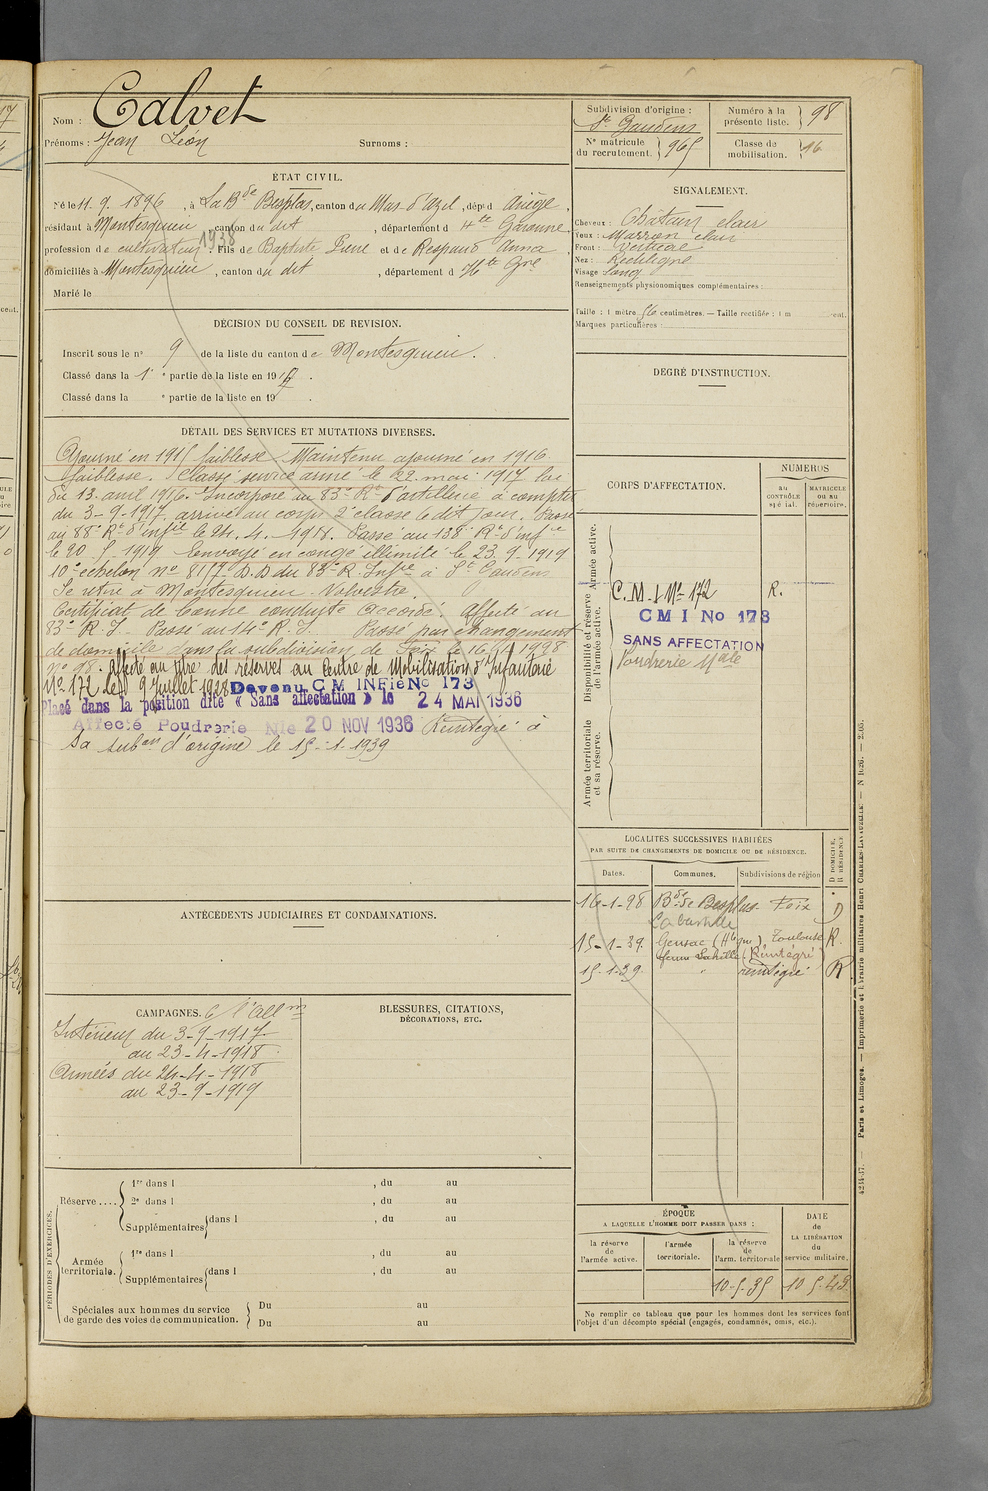 Nom : Calvet
Prénoms : Jean Léon Surnoms :
Subdivision d'origine :
St Gaudens
Nº matricule du recrutement. 965
Numéro à la présente liste. 98
Classe de mobilisation. 16
ÉTAT CIVIL.
Né le 11. 9. 1896, à La Bde Besplas, canton du Mas d'Azil, dépt d Ariège,
résidant à Montesquieu, canton du dit, département d Hte Garonne,
1938
profession de cultivateur. Fils de Baptiste Pierre et de Respaud Anna
domiciliés à Montesquieu, canton du dit, département d Hte Gne
Marié le
DÉCISION DU CONSEIL DE REVISION.
Inscrit sous le nº 9 de la liste du canton de Montesquieu.
Classé dans la 1e partie de la liste en 1917.
Classé dans la e partie de la liste en 19 .
DÉTAIL DES SERVICES ET MUTATIONS DIVERSES.
Ajourné en 1915 faiblesse. Maintenu ajourné en 1916
faiblesse. Classé service armé le 22 mai 1917 loi
du 13 avril 1916. Incorporé au 83e Rt d'artillerie à compter
du 3-9-1917. arrivé au corps 2e classe le dit jour. Passé
au 88e Rt d'infie le 24. 4. 1918. Passé au 138e Rt d'infie
le 20 5 1919 Envoyé en congé illimité le 23. 9. 1919
10e échelon nº 8157 D.D du 83e R. Infie à St Gaudens
Se retire à Montesquieu-Volvestre.
Certificat de bonne conduite accordé. Affecté au
83e R.I. Passé au 14e R.I. Passé par changement
de domicile dans la subdivision de Foix le 16 1 1928
nº 98. Affecté au titre des réserves au Centre de Mobilisation d'Infanterie
Nº 172 le 9 Juillet 1928 Devenu C M INFie No 173
Placé dans la position dite « Sans affectation » le 24 MAI 1936
Affecté Poudrerie Nle 20 NOV 1936 Réintégré à
sa subon d'origine le 15-1-1939
ANTÉCÉDENTS JUDICIAIRES ET CONDAMNATIONS.
CAMPAGNES. c/ l'allm
Intérieur du 3-9-1917
au 23-4-1918
Armées du 24-4-1918
au 23-9-1919
BLESSURES, CITATIONS,
DÉCORATIONS, ETC.
PÉRIODES D'EXERCICES.
Réserve ....
1re dans l , du au
2e dans l , du au
Supplémentaires dans l , du au
Armée territoriale.
1re dans l , du au
Supplémentaires dans l , du au
Spéciales aux hommes du service
de garde des voies de communication.
Du au
Du au
SIGNALEMENT.
Cheveux : Châtain clair
Yeux : Marron clair
Front : Verticale
Nez : Rectiligne
Visage Long
Renseignements physionomiques complémentaires :
Taille : 1 mètre 56 centimètres. — Taille rectifiée : 1 m cent.
Marques particulières :
DEGRÉ D'INSTRUCTION.
CORPS D'AFFECTATION.
NUMÉROS
AU CONTRÔLE spécial.
MATRICULE ou au répertoire.
Armée active.
Disponibilité et réserve de l'armée active.
Armée territoriale et sa réserve.
C. M. I Nº 172 R.
C M I No 173
SANS AFFECTATION
Poudrerie Nale
LOCALITÉS SUCCESSIVES HABITÉES
PAR SUITE DE CHANGEMENTS DE DOMICILE OU DE RÉSIDENCE.
D DOMICILE.
R RÉSIDENCE
Dates. Communes. Subdivisions de région
16-1-28 Bde de Besplas Foix D
Labastide
15-1-39. Gensac (Hte Gne) Toulouse R.
(Réintégré)
15-1-39. " réintégré R
ÉPOQUE
A LAQUELLE L'HOMME DOIT PASSER DANS :
DATE de LA LIBÉRATION du service militaire.
la réserve de l'armée active.
l'armée territoriale.
la réserve de l'arm. territoriale
10-5-35 10 5-43
Ne remplir ce tableau que pour les hommes dont les services font
l'objet d'un décompte spécial (engagés, condamnés, omis, etc.).
Paris et Limoges. — Imprimerie et librairie militaires Henri CHARLES-LAVAUZELLE.